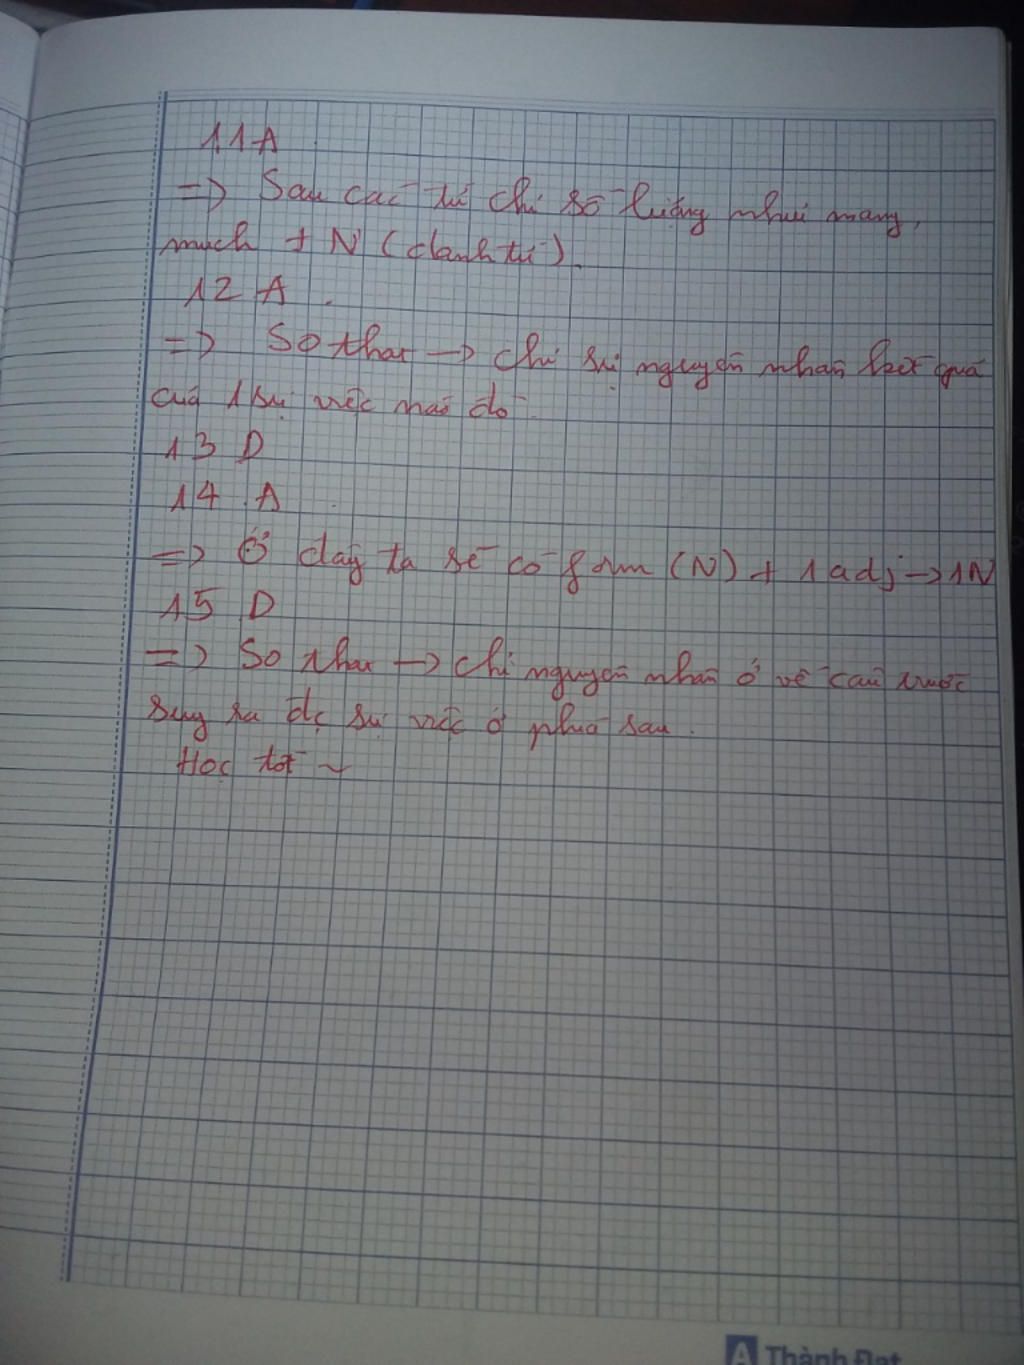 11 A
=> Sau các từ chỉ số lượng như many,
much + N (danh từ).
12 A.
=> So that -> chỉ sự nguyên nhân kết quả
của 1 sự việc nào đó.
13 D
14 A
=> Ở đây ta sẽ có form (N) + 1 adj -> 1N
15 D
=> So that -> chỉ nguyên nhân ở vế câu trước
suy ra đc sự việc ở phía sau.
Học tốt ~
A Thành Đạt